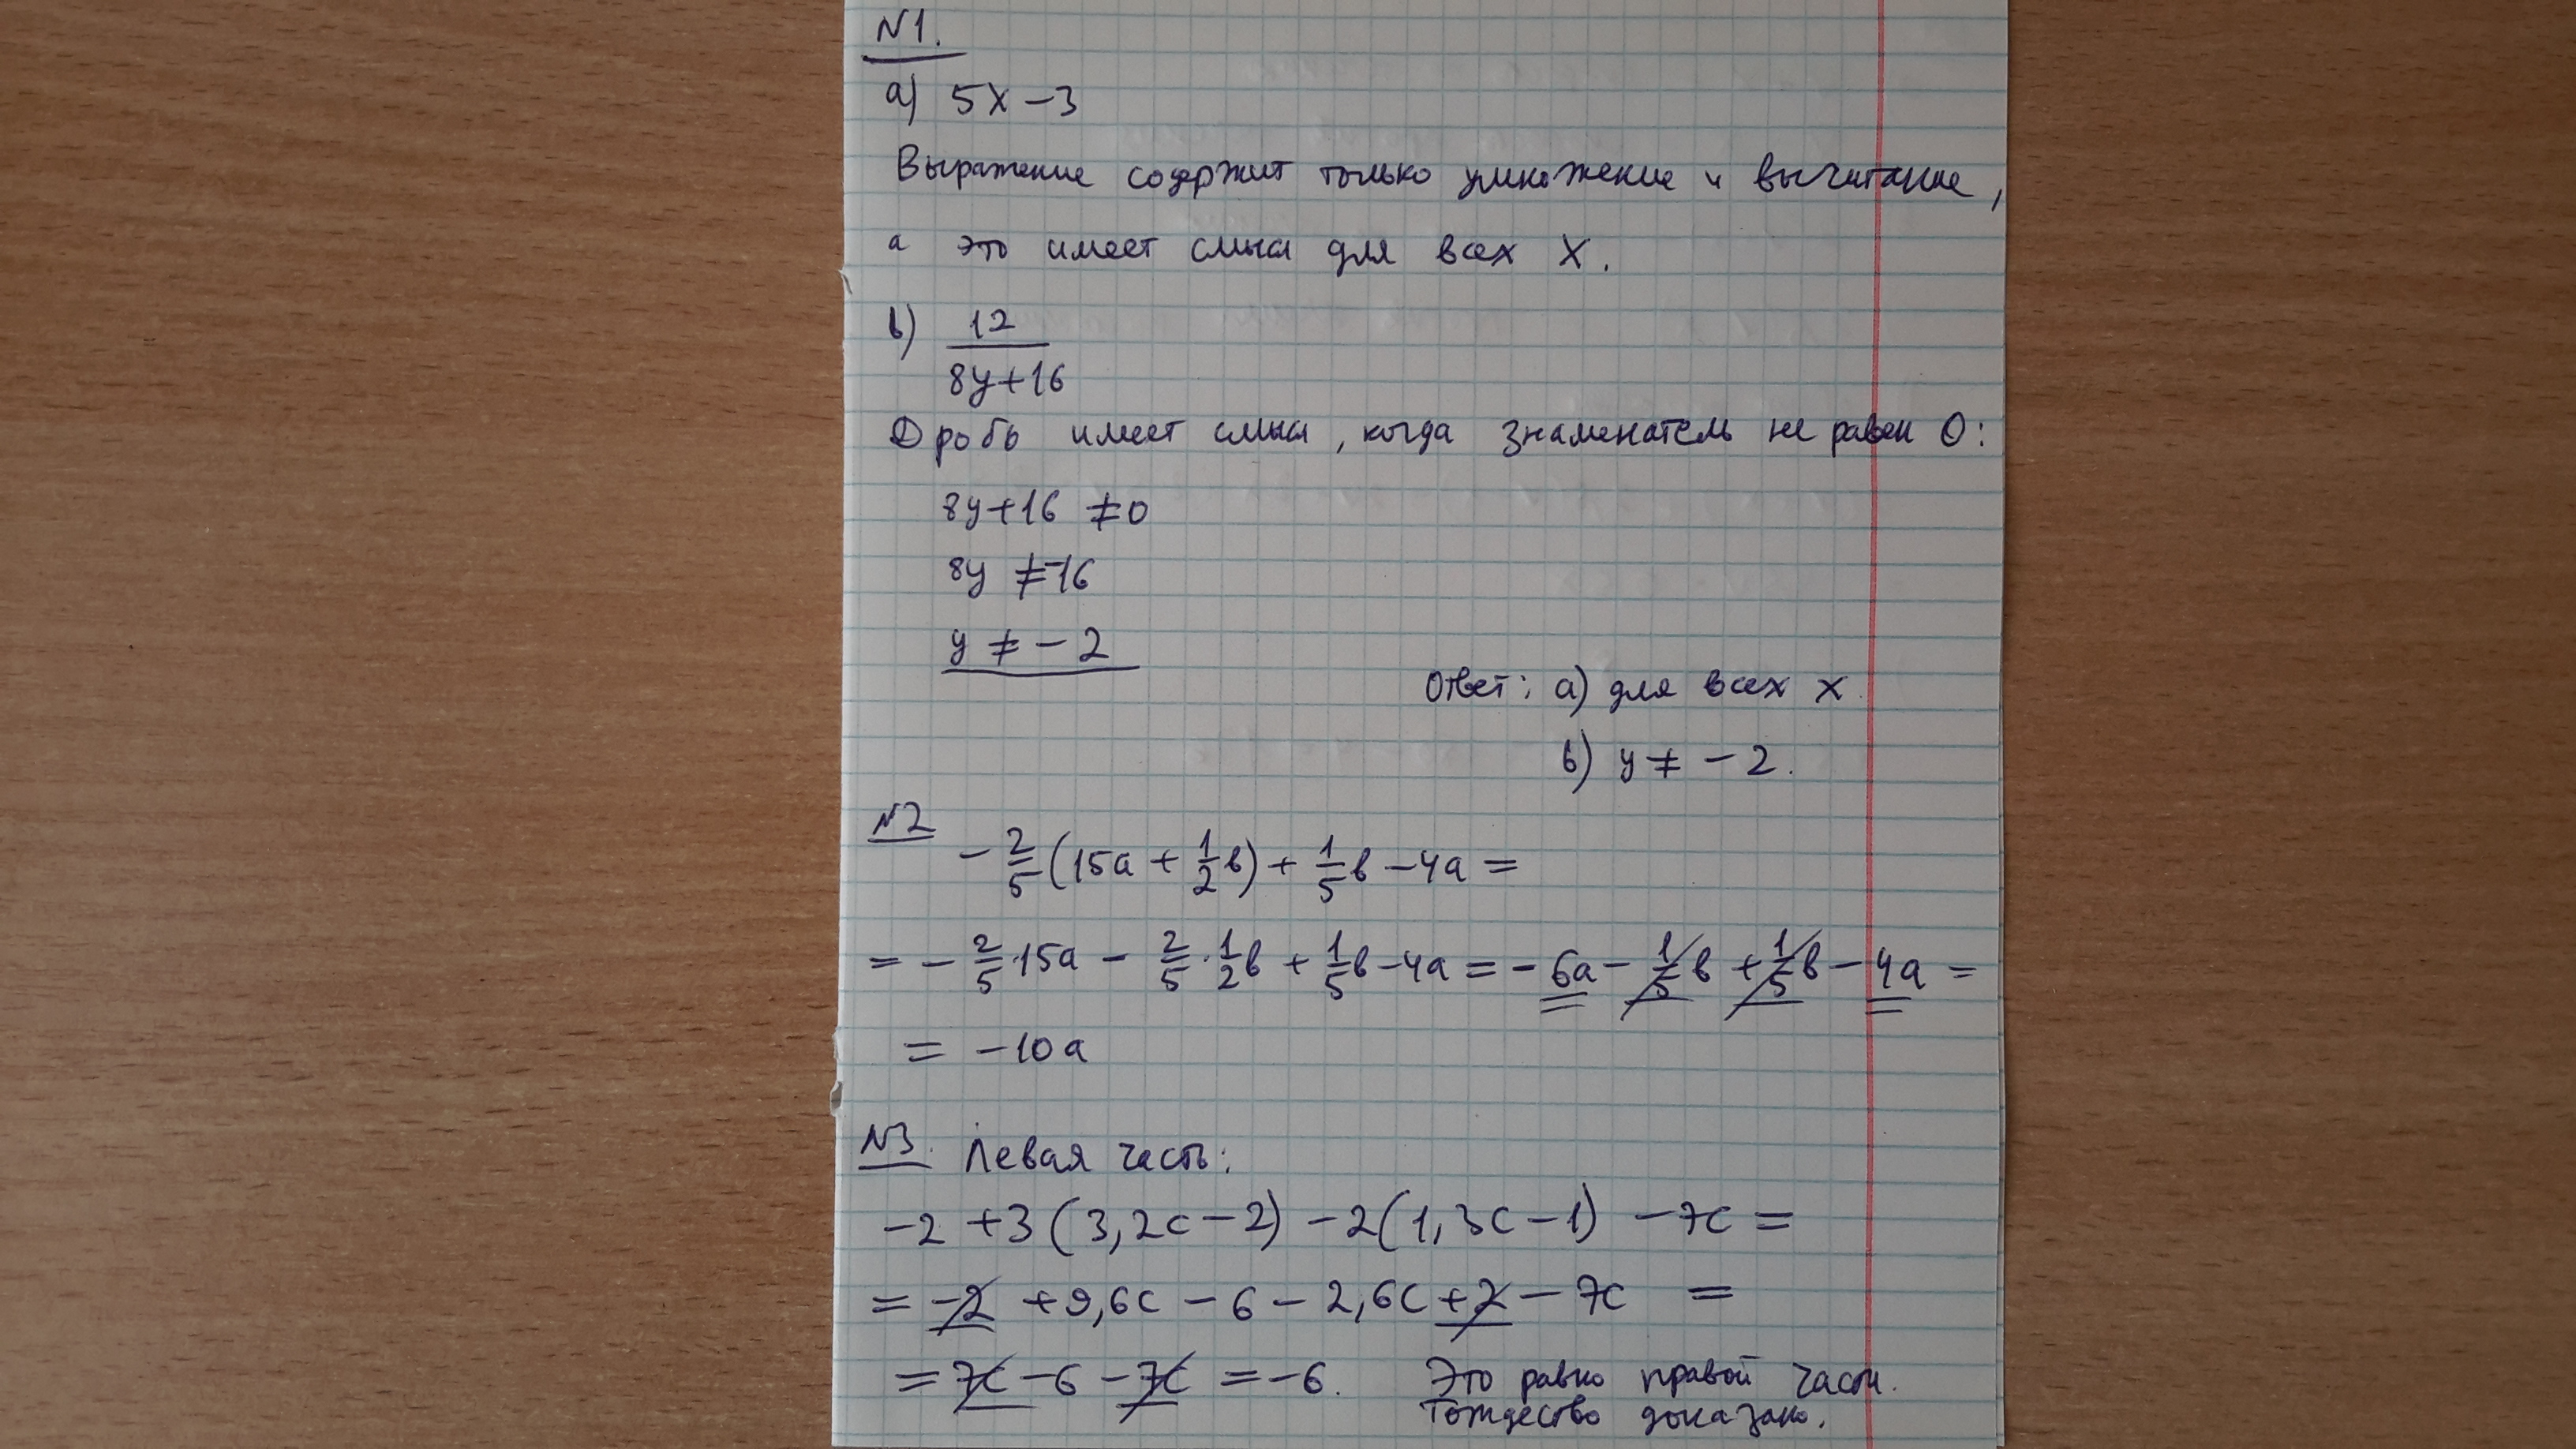 №1.
а) 5x-3
Выражение содержит только умножение и вычитание,
а это имеет смысл для всех X.
в) 12/(8y+16)
Дробь имеет смысл, когда знаменатель не равен 0:
8y+16 ≠0
8y ≠-16
y ≠ -2
Ответ: а) для всех x
в) y ≠ -2.
№2
-2/5(15a + 1/2в) + 1/5в - 4a =
= -2/5·15a - 2/5·1/2в + 1/5в - 4a = -6a - 1/5в + 1/5в - 4a =
= -10a
№3. Левая часть:
-2 +3 (3,2c-2) -2(1,3c-1) -7c =
= -2 +9,6c - 6 - 2,6c +2 - 7c =
= 7c - 6 - 7c = -6. Это равно правой части.
Тождество доказано.